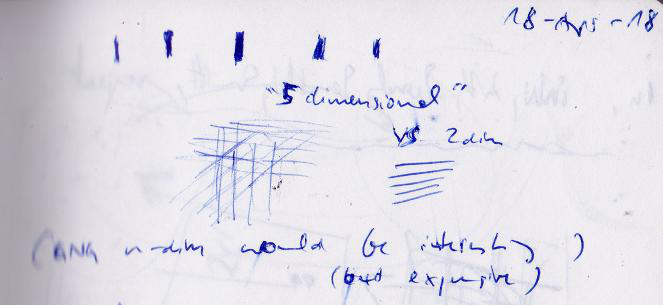 18-Apr-18
"5 dimensional"
vs. 2dim
( n-dim would be interesting )
(but expensive)